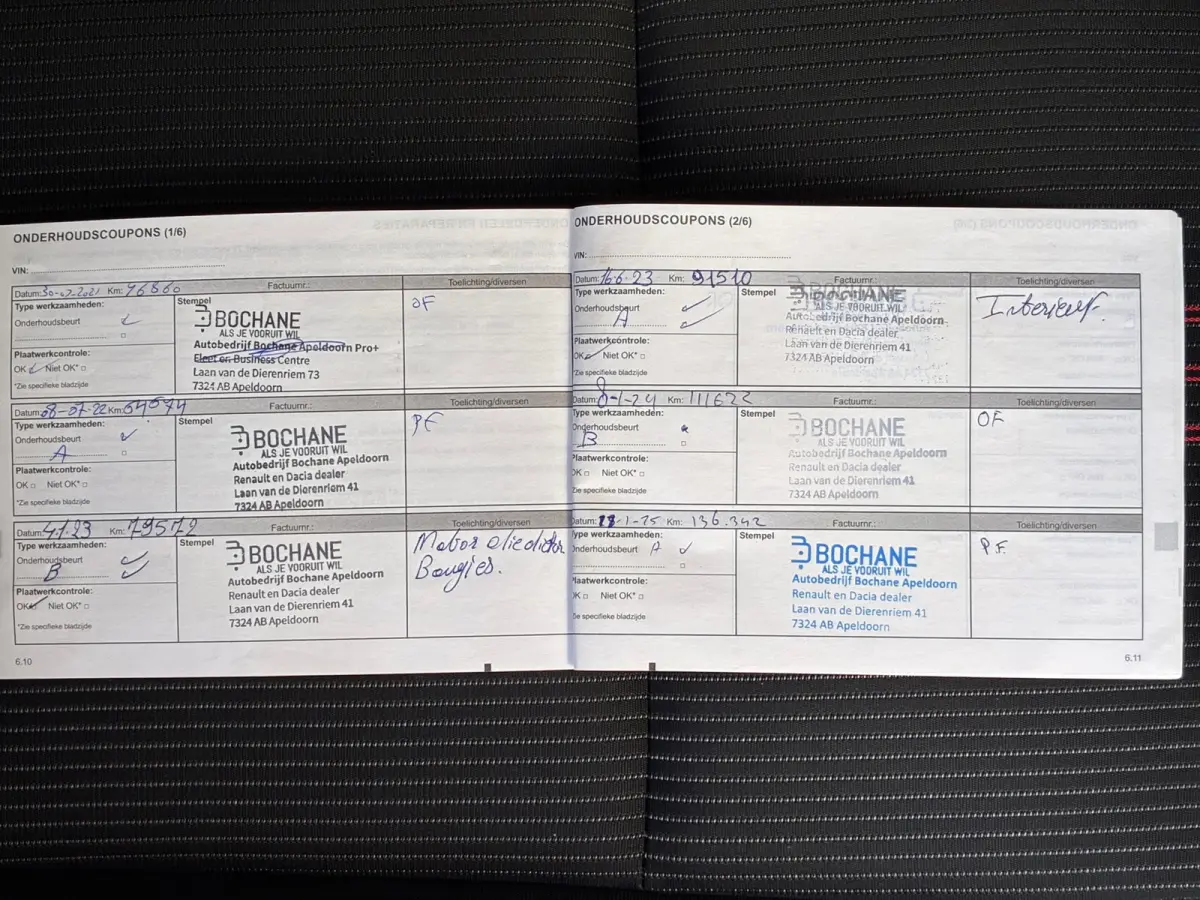 ONDERHOUDSCOUPONS (1/6)
VIN:
Datum: 30-07-2021 Km: Factuurnr.: Toelichting/diversen
Type werkzaamheden:
Onderhoudsbeurt
Stempel
BOCHANE
ALS JE VOORUIT WIL
Autobedrijf Bochane Apeldoorn Pro+
Business Centre
Laan van de Dierenriem 73
7324 AB Apeldoorn
OF
Plaatwerkcontrole:
OK Niet OK*
*Zie specifieke bladzijde
Datum: 08-07-22 Km: Factuurnr.: Toelichting/diversen
Type werkzaamheden:
Onderhoudsbeurt
A
Stempel
BOCHANE
ALS JE VOORUIT WIL
Autobedrijf Bochane Apeldoorn
Renault en Dacia dealer
Laan van de Dierenriem 41
7324 AB Apeldoorn
PF
Plaatwerkcontrole:
OK Niet OK*
*Zie specifieke bladzijde
Datum: 4.1.23 Km: 79572 Factuurnr.: Toelichting/diversen
Type werkzaamheden:
Onderhoudsbeurt
B
Stempel
BOCHANE
ALS JE VOORUIT WIL
Autobedrijf Bochane Apeldoorn
Renault en Dacia dealer
Laan van de Dierenriem 41
7324 AB Apeldoorn
Motor
Bougies.
Plaatwerkcontrole:
OK Niet OK*
*Zie specifieke bladzijde
6.10
ONDERHOUDSCOUPONS (2/6)
VIN:
Datum: 16.6.23 Km: 91510 Factuurnr.: Toelichting/diversen
Type werkzaamheden:
Onderhoudsbeurt
A
Stempel
BOCHANE
ALS JE VOORUIT WIL
Autobedrijf Bochane Apeldoorn
Renault en Dacia dealer
Laan van de Dierenriem 41
7324 AB Apeldoorn
Interieurf.
Plaatwerkcontrole:
OK Niet OK*
*Zie specifieke bladzijde
Datum: 8-1-24 Km: 111622 Factuurnr.: Toelichting/diversen
Type werkzaamheden:
Onderhoudsbeurt
B
Stempel
BOCHANE
ALS JE VOORUIT WIL
Autobedrijf Bochane Apeldoorn
Renault en Dacia dealer
Laan van de Dierenriem 41
7324 AB Apeldoorn
OF
Plaatwerkcontrole:
OK Niet OK*
Zie specifieke bladzijde
Datum: -1-25 Km: 136.342 Factuurnr.: Toelichting/diversen
Type werkzaamheden:
Onderhoudsbeurt A
Stempel
BOCHANE
ALS JE VOORUIT WIL
Autobedrijf Bochane Apeldoorn
Renault en Dacia dealer
Laan van de Dierenriem 41
7324 AB Apeldoorn
P.F.
Plaatwerkcontrole:
OK Niet OK*
Zie specifieke bladzijde
6.11